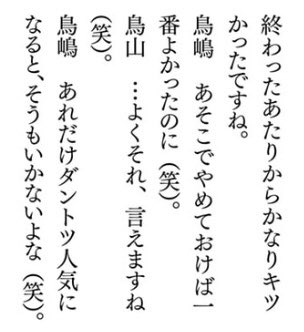 終わったあたりからかなりキツ
かったですね。
鳥嶋　あそこでやめておけば一
番よかったのに（笑）。
鳥山　…よくそれ、言えますね
（笑）。
鳥嶋　あれだけダントツ人気に
なると、そうもいかないよな（笑）。